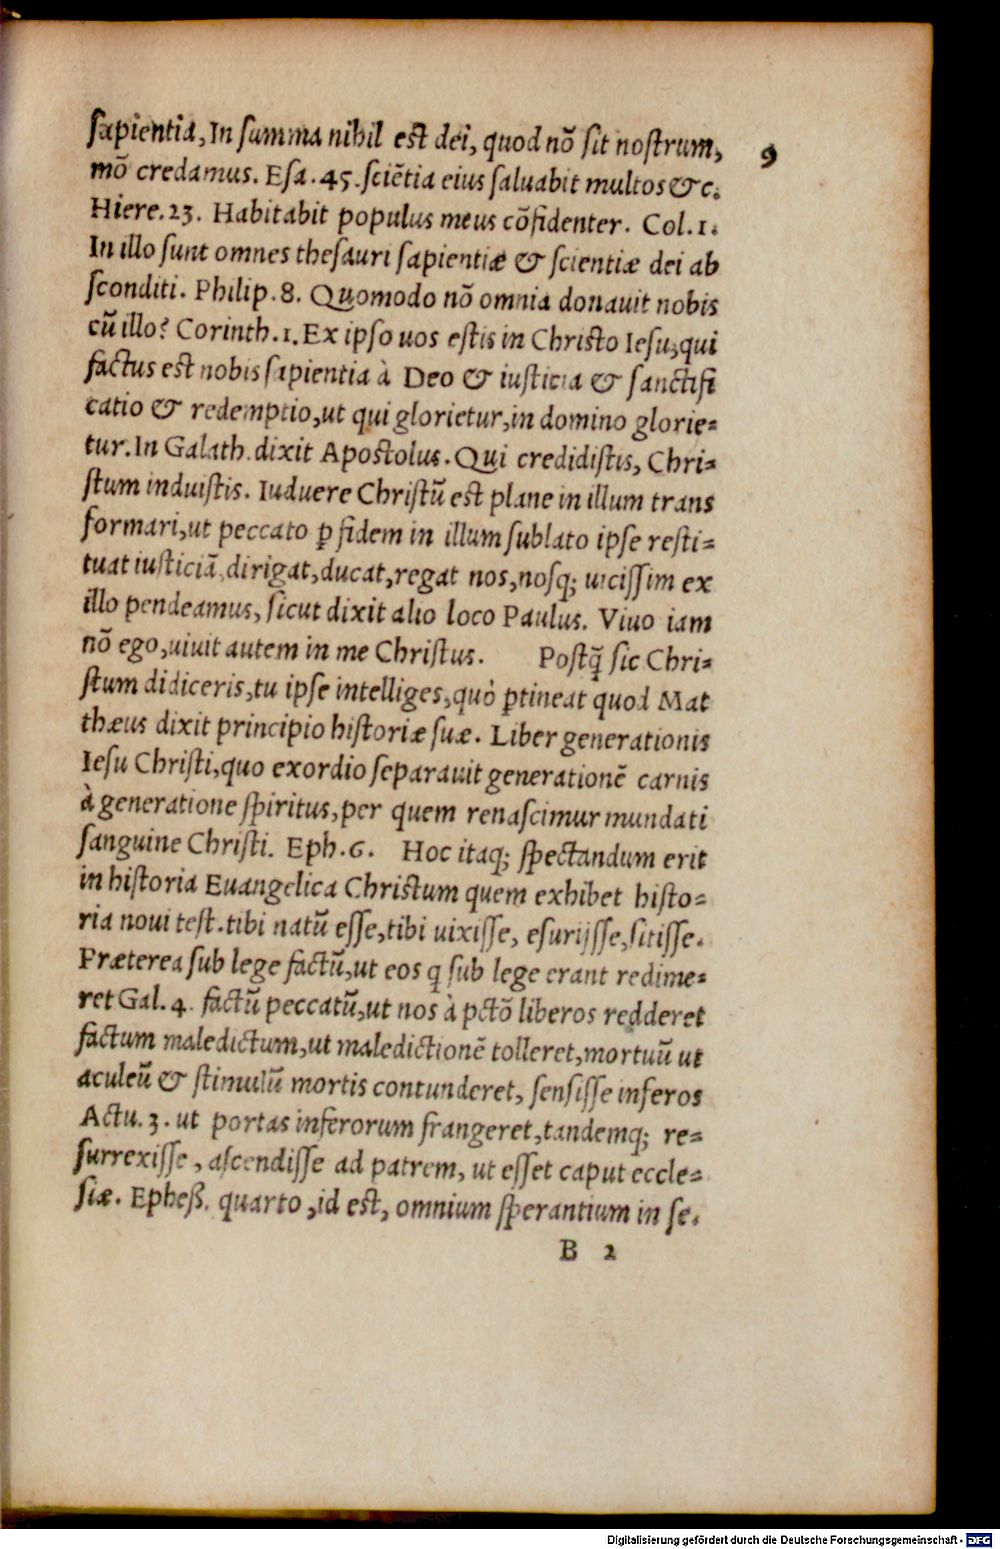 sapientia, In summa nihil est dei, quod nõ sit nostrum,
9
mõ credamus. Esa .45. sciẽtia eius saluabit multos &c.
Hiere.23. Habitabit populus meus cõfidenter. Col.1.
In illo sunt omnes thesauri sapientiæ & scientiæ dei ab
sconditi. Philip.8. Quomodo nõ omnia donauit nobis
cũ illo? Corinth.1. Ex ipso uos estis in Christo Iesu, qui
factus est nobis sapientia à Deo & iusticia & sanctifi
catio & redemptio, ut qui glorietur, in domino glorie=
tur. In Galath. dixit Apostolus. Qui credidistis, Chri=
stum induistis. Iuduere Christũ est plane in illum trans
formari, ut peccato ꝑ fidem in illum sublato ipse resti=
tuat iusticiã, dirigat, ducat, regat nos, nosq; uicissim ex
illo pendeamus, sicut dixit alio loco Paulus. Viuo iam
nõ ego, uiuit autem in me Christus. Postq̃ sic Chri=
stum didiceris, tu ipse intelliges, quò ꝑtineat quod Mat
thæus dixit principio historiæ suæ. Liber generationis
Iesu Christi, quo exordio separauit generationẽ carnis
à generatione spiritus, per quem renascimur mundati
sanguine Christi. Eph.6. Hoc itaq; spectandum erit
in historia Euangelica Christum quem exhibet histo=
ria noui test. tibi natũ esse, tibi uixisse, esurijsse, sitisse.
Præterea sub lege factũ, ut eos q̃ sub lege erant redime=
ret Gal.4. factũ peccatũ, ut nos à pctõ liberos redderet
factum maledictum, ut maledictionẽ tolleret, mortuũ ut
aculeũ & stimulũ mortis contunderet, sensisse inferos
Actu.3. ut portas inferorum frangeret, tandemq; re=
surrexisse, ascendisse ad patrem, ut esset caput eccle=
siæ. Epheß. quarto, id est, omnium sperantium in se.
B 2
Digitalisierung gefördert durch die Deutsche Forschungsgemeinschaft - DFG